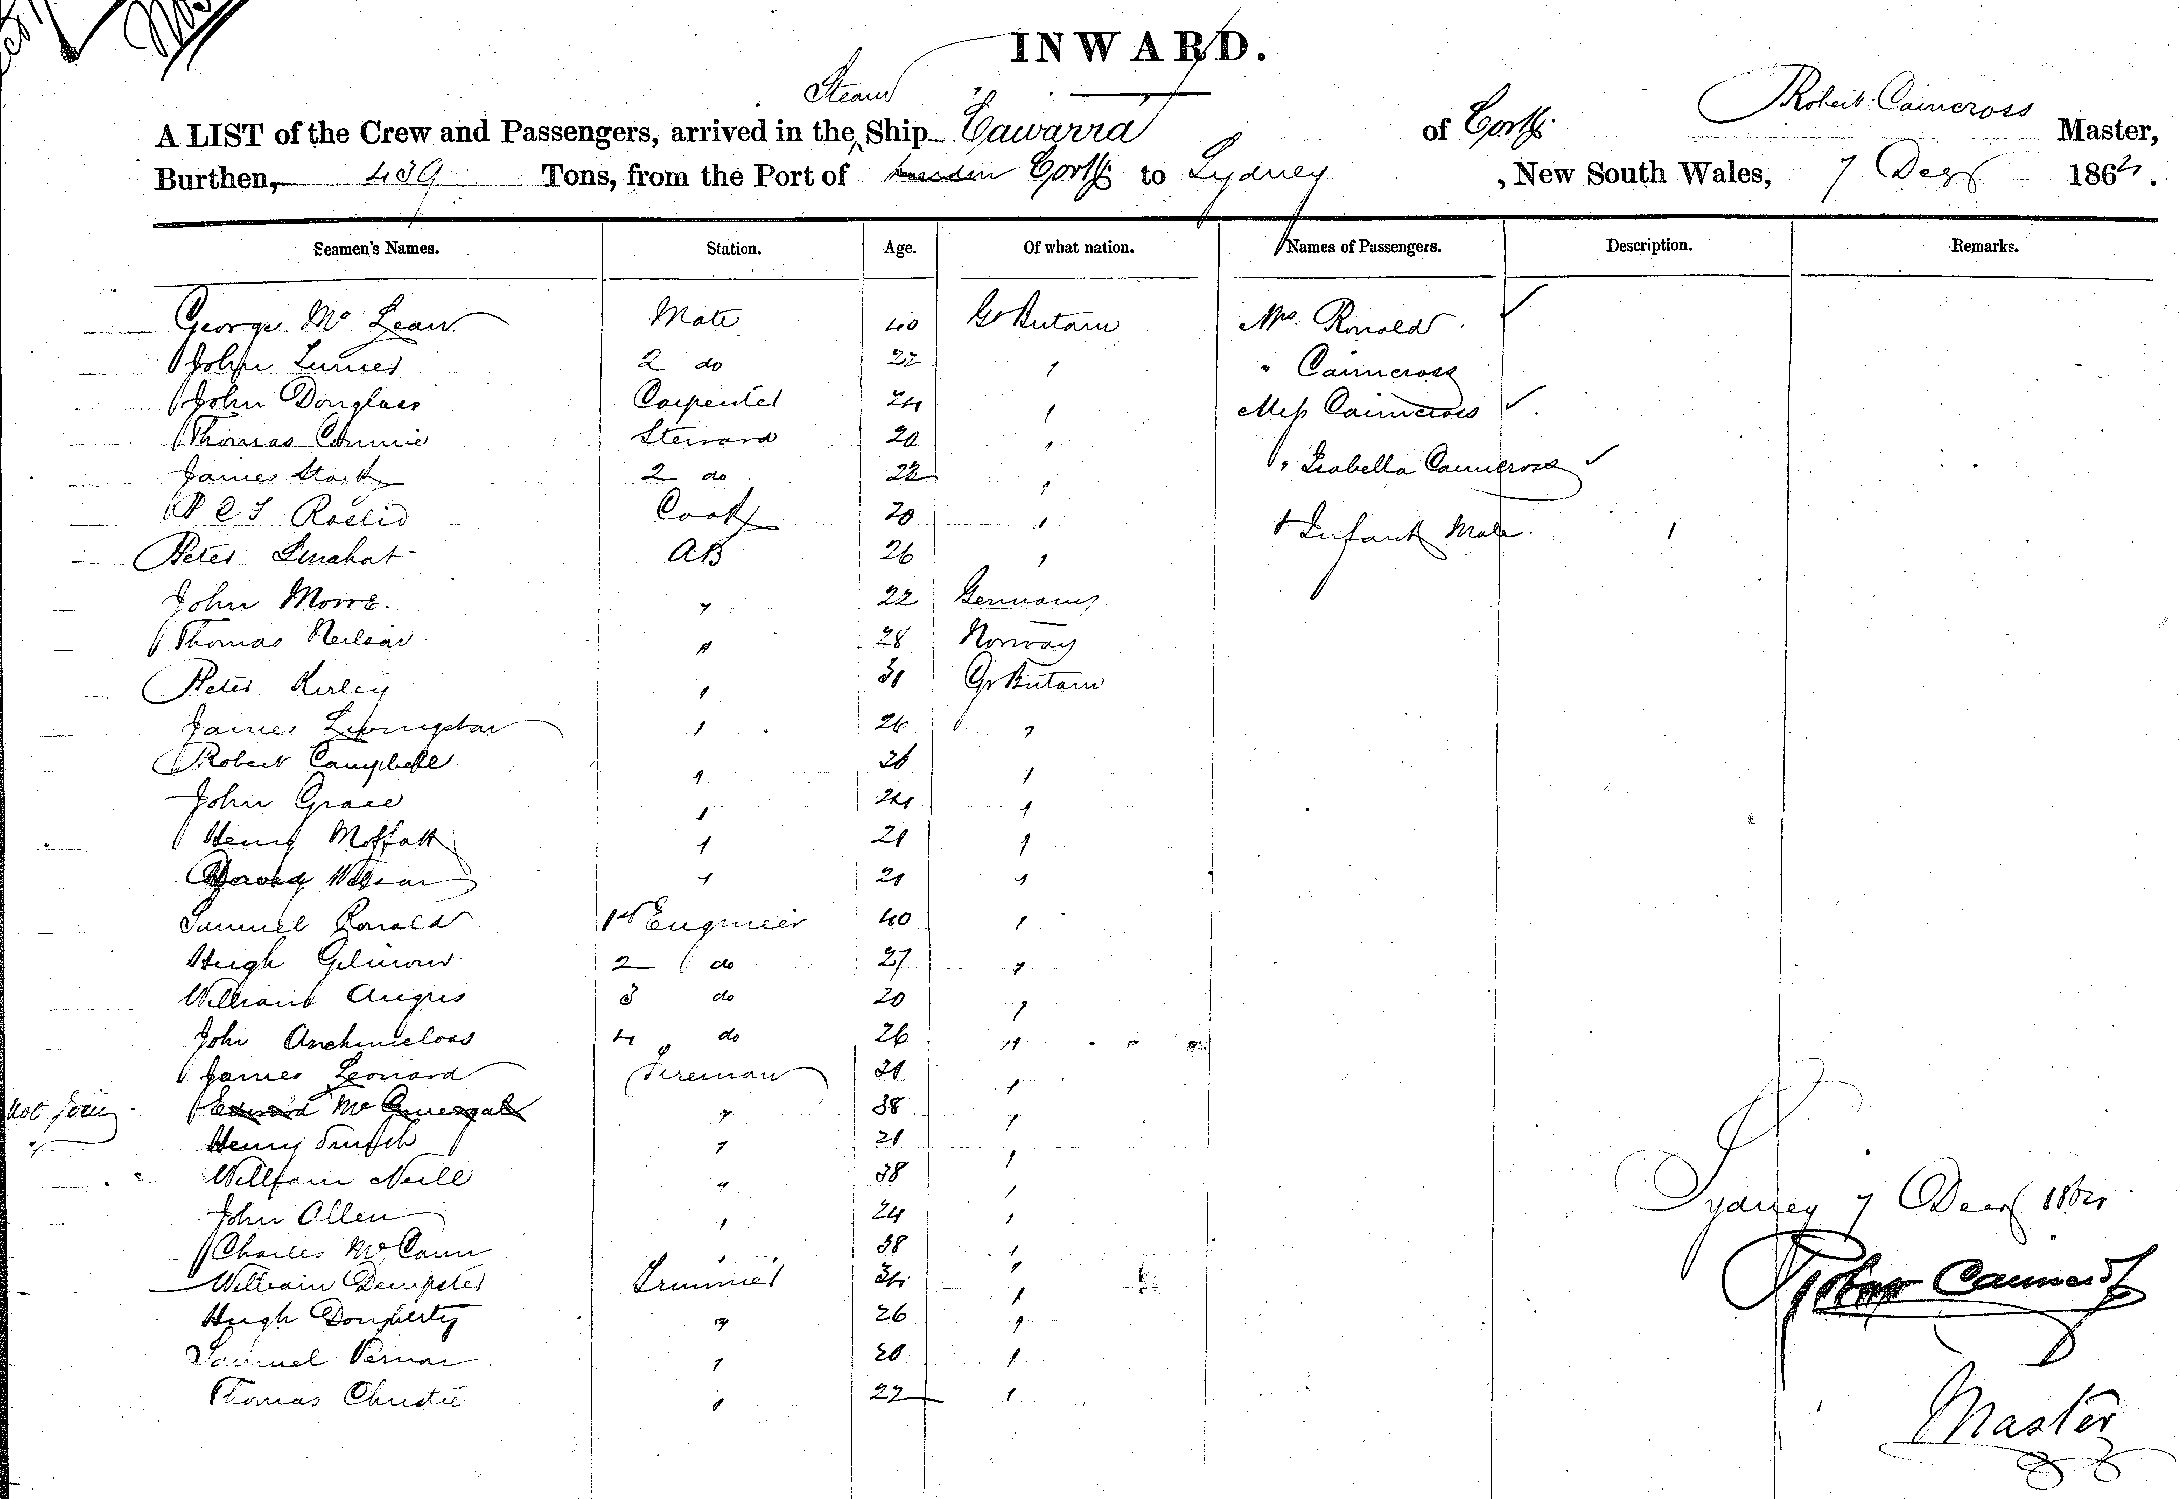 INWARD.
Steam
Robert Cairncross
A LIST of the Crew and Passengers, arrived in the Ship Cawarra of Master,
Burthen, 439 Tons, from the Port of to Sydney , New South Wales, 7 Decr 1864.
Seamen's Names. Station. Age. Of what nation. Names of Passengers. Description. Remarks.
George McLean Mate 40 Gt Britain Mrs Ronald
John 2 do 22 " " Cairncross
John Douglass Carpenter 24 " Miss Cairncross
Thomas Steward 20 "
James Stark 2 do 22 " " Isabella Cairncross
Cook 20 "
Peter AB 26 " 1 Infant Male 1
John " 22 Germany
Thomas Neilson " 28 Norway
Peter Kerley " 31 Gt Britain
James Livingston " 26 "
Robert Campbell " "
John Grace " 24 "
Henry Moffatt " 21 "
David " 21 "
Samuel Ronald 1st Engineer 40 "
Hugh Gilmour 2 do 27 "
William Angus 3 do 20 "
John 4 do 26 "
James Leonard Fireman "
not join Edward Mc " 38 "
Henry " 21 "
William Neill " 38 "
John Allen " 24 "
Charles McCann " 38 "
William Dempster Trimmer "
Hugh Dougherty " 26 "
Samuel " 20 "
Thomas Christie " 22 "
Sydney 7 Decr 1864
Robert Cairncross
Master